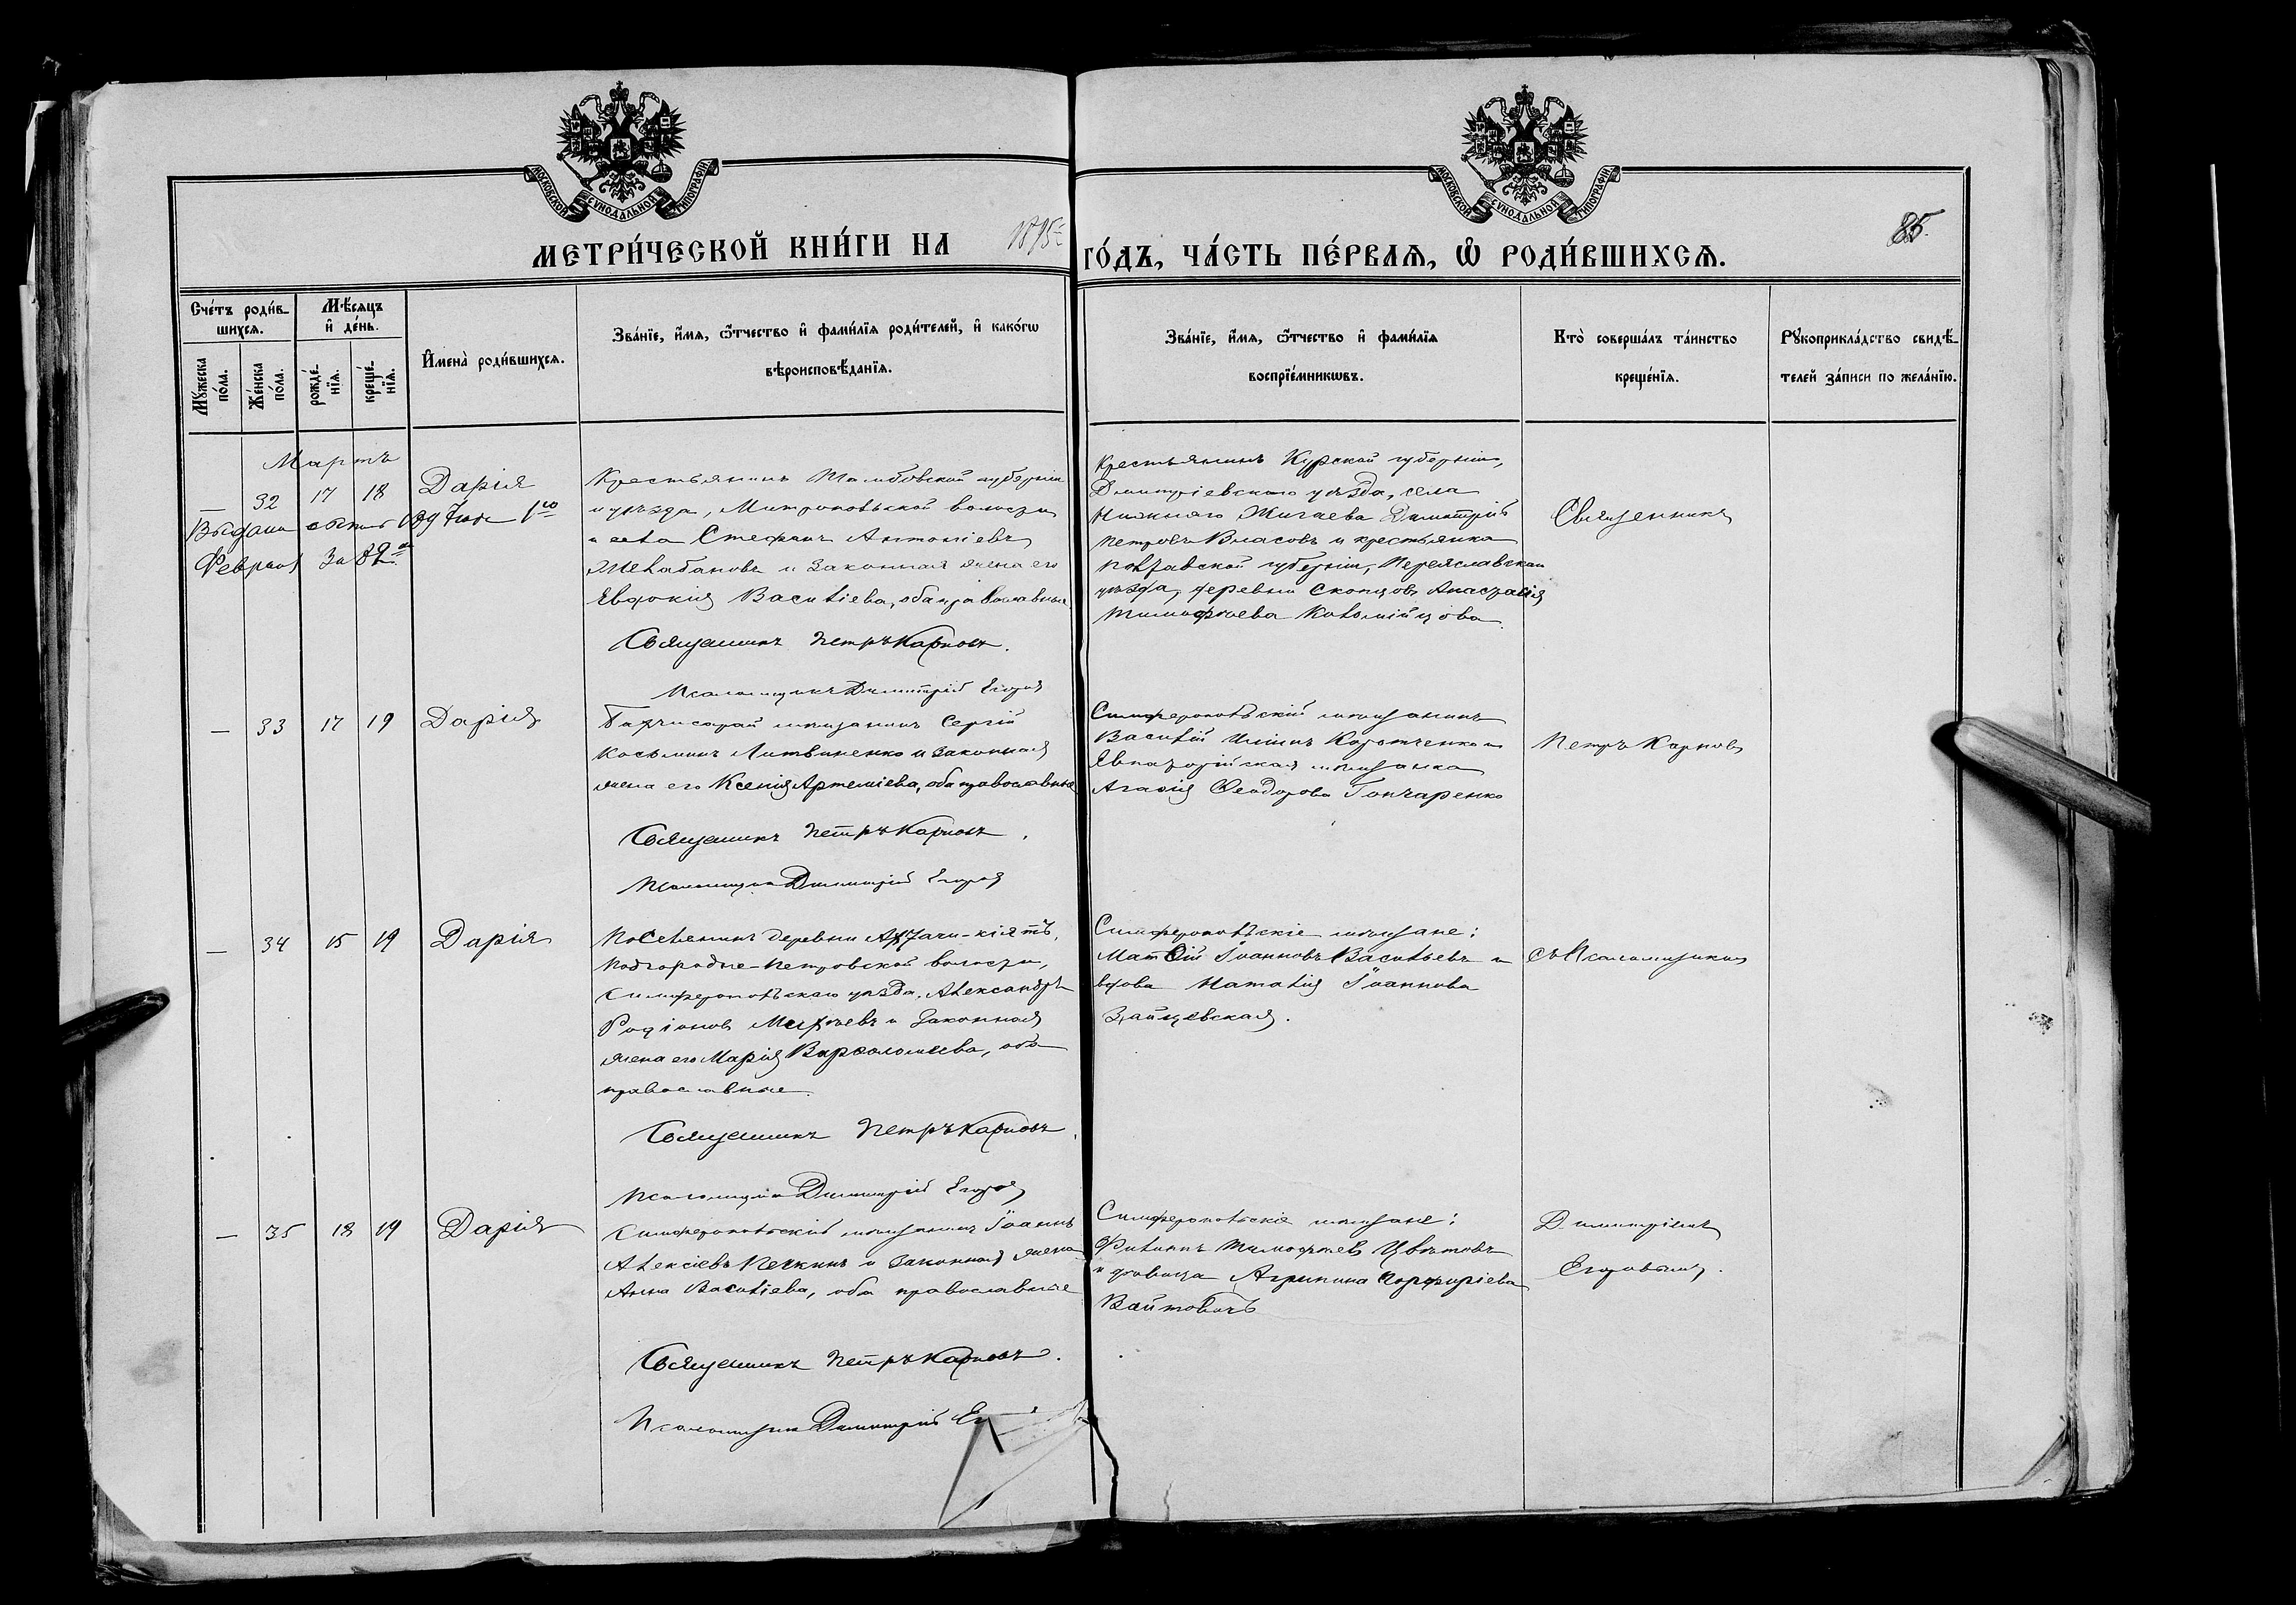 МОСКОВСКОЙ СѴНОДАЛЬНОЙ ТИПОГРАФІИ
МОСКОВСКОЙ СѴНОДАЛЬНОЙ ТИПОГРАФІИ
85.
МЕТРИ́ЧЕСКОЙ КНИ́ГИ НА 1895 ГО́ДЪ, ЧА́СТЬ ПЕ́РВАѦ, Ѡ҆ РОДИ́ВШИХСѦ.
Сче́тъ роди́в-
шихсѧ.
Мꙋ́жеска по́ла.
Же́нска по́ла.
Мѣ́сѧцъ
и҆ де́нь.
рожде́-нїѧ.
креще́-нїѧ.
И҆мена̀ роди́вшихсѧ.
Зва́нїе, и҆́мѧ, ѻ҆́тчество и҆ фами́лїѧ роди́телей, и҆ како́гѡ
вѣроисповѣ́данїѧ.
Зва́нїе, и҆́мѧ, ѻ҆́тчество и҆ фами́лїѧ
воспрїе́мникѡвъ.
Кто̀ соверша́лъ та́инство
креще́нїѧ.
Рꙋкоприкла́дство свидѣ́-
телей за́писи по жела́нїю.
Мартъ
— 32 17 18 Дарія
Февраля За №
Крестьянинъ Тамбовской губерніи
и уѣзда, Митропольской волости
и села Стефанъ Антоніевъ
и законная жена его
Евдокія Василіева, оба православные
Священникъ Петръ Карповъ.
Псаломщикъ Димитрій Егоров
Крестьянинъ Курской губерніи,
Дмитріевскаго уѣзда, села
Нижняго Жигаева Димитрій
Петровъ Власовъ и крестьянка
Полтавской губерніи, Переяславскаго
уѣзда, деревни Скопцовъ Анастасія
Тимофеева Коломійцова
Священникъ
— 33 17 19 Дарія
Бахчисарай мѣщанинъ Сергій
Косьминъ Литвиненко и законная
жена его Ксенія Артеміева, оба православные
Священникъ Петръ Карповъ.
Псаломщикъ Димитрій Егоров
Симферопольскій мѣщанинъ
Василій Иліинъ Коротченко и
Евпаторійская мѣщанка
Агафія Феодорова Гончаренко
Петръ Карповъ
— 34 15 19 Дарія
Поселянинъ деревни Аджи-кіятъ,
Подгородне-Петровской волости,
Симферопольскаго уѣзда, Александръ
Родіоновъ и законная
жена его Марія Варфоломеева, оба
православные.
Священникъ Петръ Карповъ.
Псаломщикъ Димитрій Егоров
Симферопольскіе мѣщане:
Матѳій Іоанновъ Васильевъ и
вдова Наталія Іоаннова
Зайцевская.
съ Псаломщикомъ
— 35 18 19 Дарія
Симферопольскій мѣщанинъ Іоаннъ
Алексіевъ и законная жена
Анна Василіева, оба православные
Священникъ Петръ Карповъ.
Псаломщикъ Димитрій
Симферопольскіе мѣщане:
Филиппъ Тимофеевъ Цвѣтовъ
и дѣвица Агрипина Порфиріева
Войтовичъ
Димитріемъ
Егоровымъ.